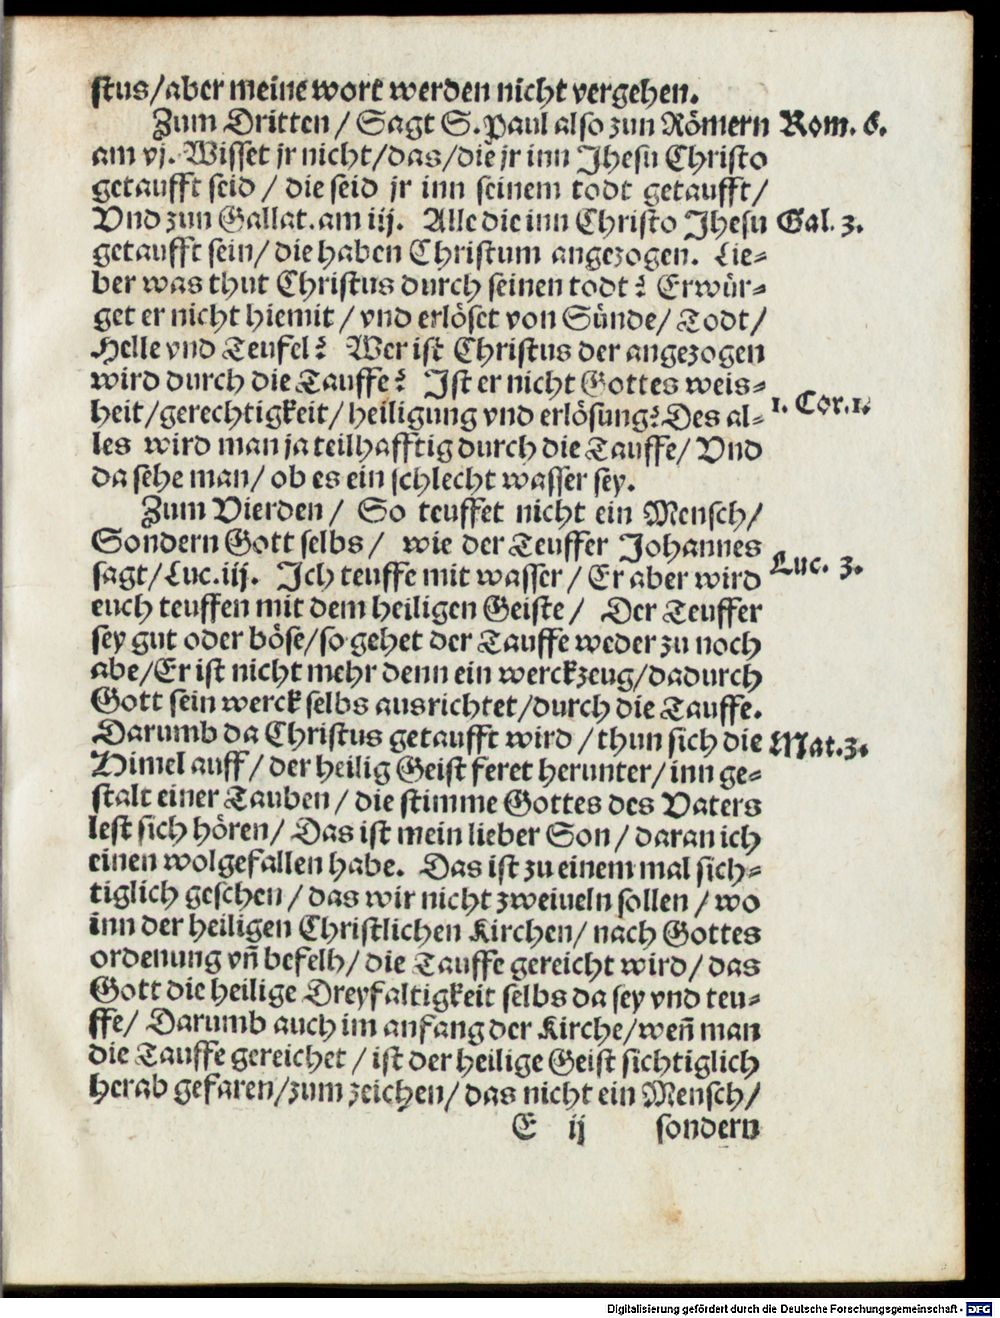 stus/aber meine wort werden nicht vergehen.
Zum Dritten / Sagt S. Paul also zun Römern Rom. 6.
am vj. Wisset jr nicht/das/die jr inn Jhesu Christo
getaufft seid / die seid jr inn seinem todt getaufft/
Vnd zun Gallat. am iij. Alle die inn Christo Jhesu Gal. 3.
getaufft sein/ die haben Christum angezogen. Lie-
ber was thut Christus durch seinen todt? Erwür-
get er nicht hiemit / vnd erlöset von Sünde/ Todt/
Helle vnd Teufel? Wer ist Christus der angezogen
wird durch die Tauffe? Ist er nicht Gottes weis-
heit/gerechtigkeit/ heiligung vnd erlösung? Des al- 1. Cor. 1.
les wird man ja teilhafftig durch die Tauffe/ Vnd
da sehe man/ ob es ein schlecht wasser sey.
Zum Vierden / So teuffet nicht ein Mensch/
Sondern Gott selbs / wie der Teuffer Johannes
sagt/ Luc. iij. Ich teuffe mit wasser / Er aber wird Luc. 3.
euch teuffen mit dem heiligen Geiste / Der Teuffer
sey gut oder böse/so gehet der Tauffe weder zu noch
abe/Er ist nicht mehr denn ein werckzeug/dadurch
Gott sein werck selbs ausrichtet/durch die Tauffe.
Darumb da Christus getaufft wird / thun sich die Mat. 3.
Himel auff / der heilig Geist feret herunter/ inn ge-
stalt einer Tauben / die stimme Gottes des Vaters
lest sich hören/ Das ist mein lieber Son / daran ich
einen wolgefallen habe. Das ist zu einem mal sich-
tiglich geschen / das wir nicht zweiueln sollen / wo
inn der heiligen Christlichen Kirchen/ nach Gottes
ordenung vñ befelh/ die Tauffe gereicht wird/ das
Gott die heilige Dreyfaltigkeit selbs da sey vnd teu-
ffe/ Darumb auch im anfang der Kirche/weñ man
die Tauffe gereichet / ist der heilige Geist sichtiglich
herab gefaren/zum zeichen/ das nicht ein Mensch/
E ij sondern
Digitalisierung gefördert durch die Deutsche Forschungsgemeinschaft - DFG